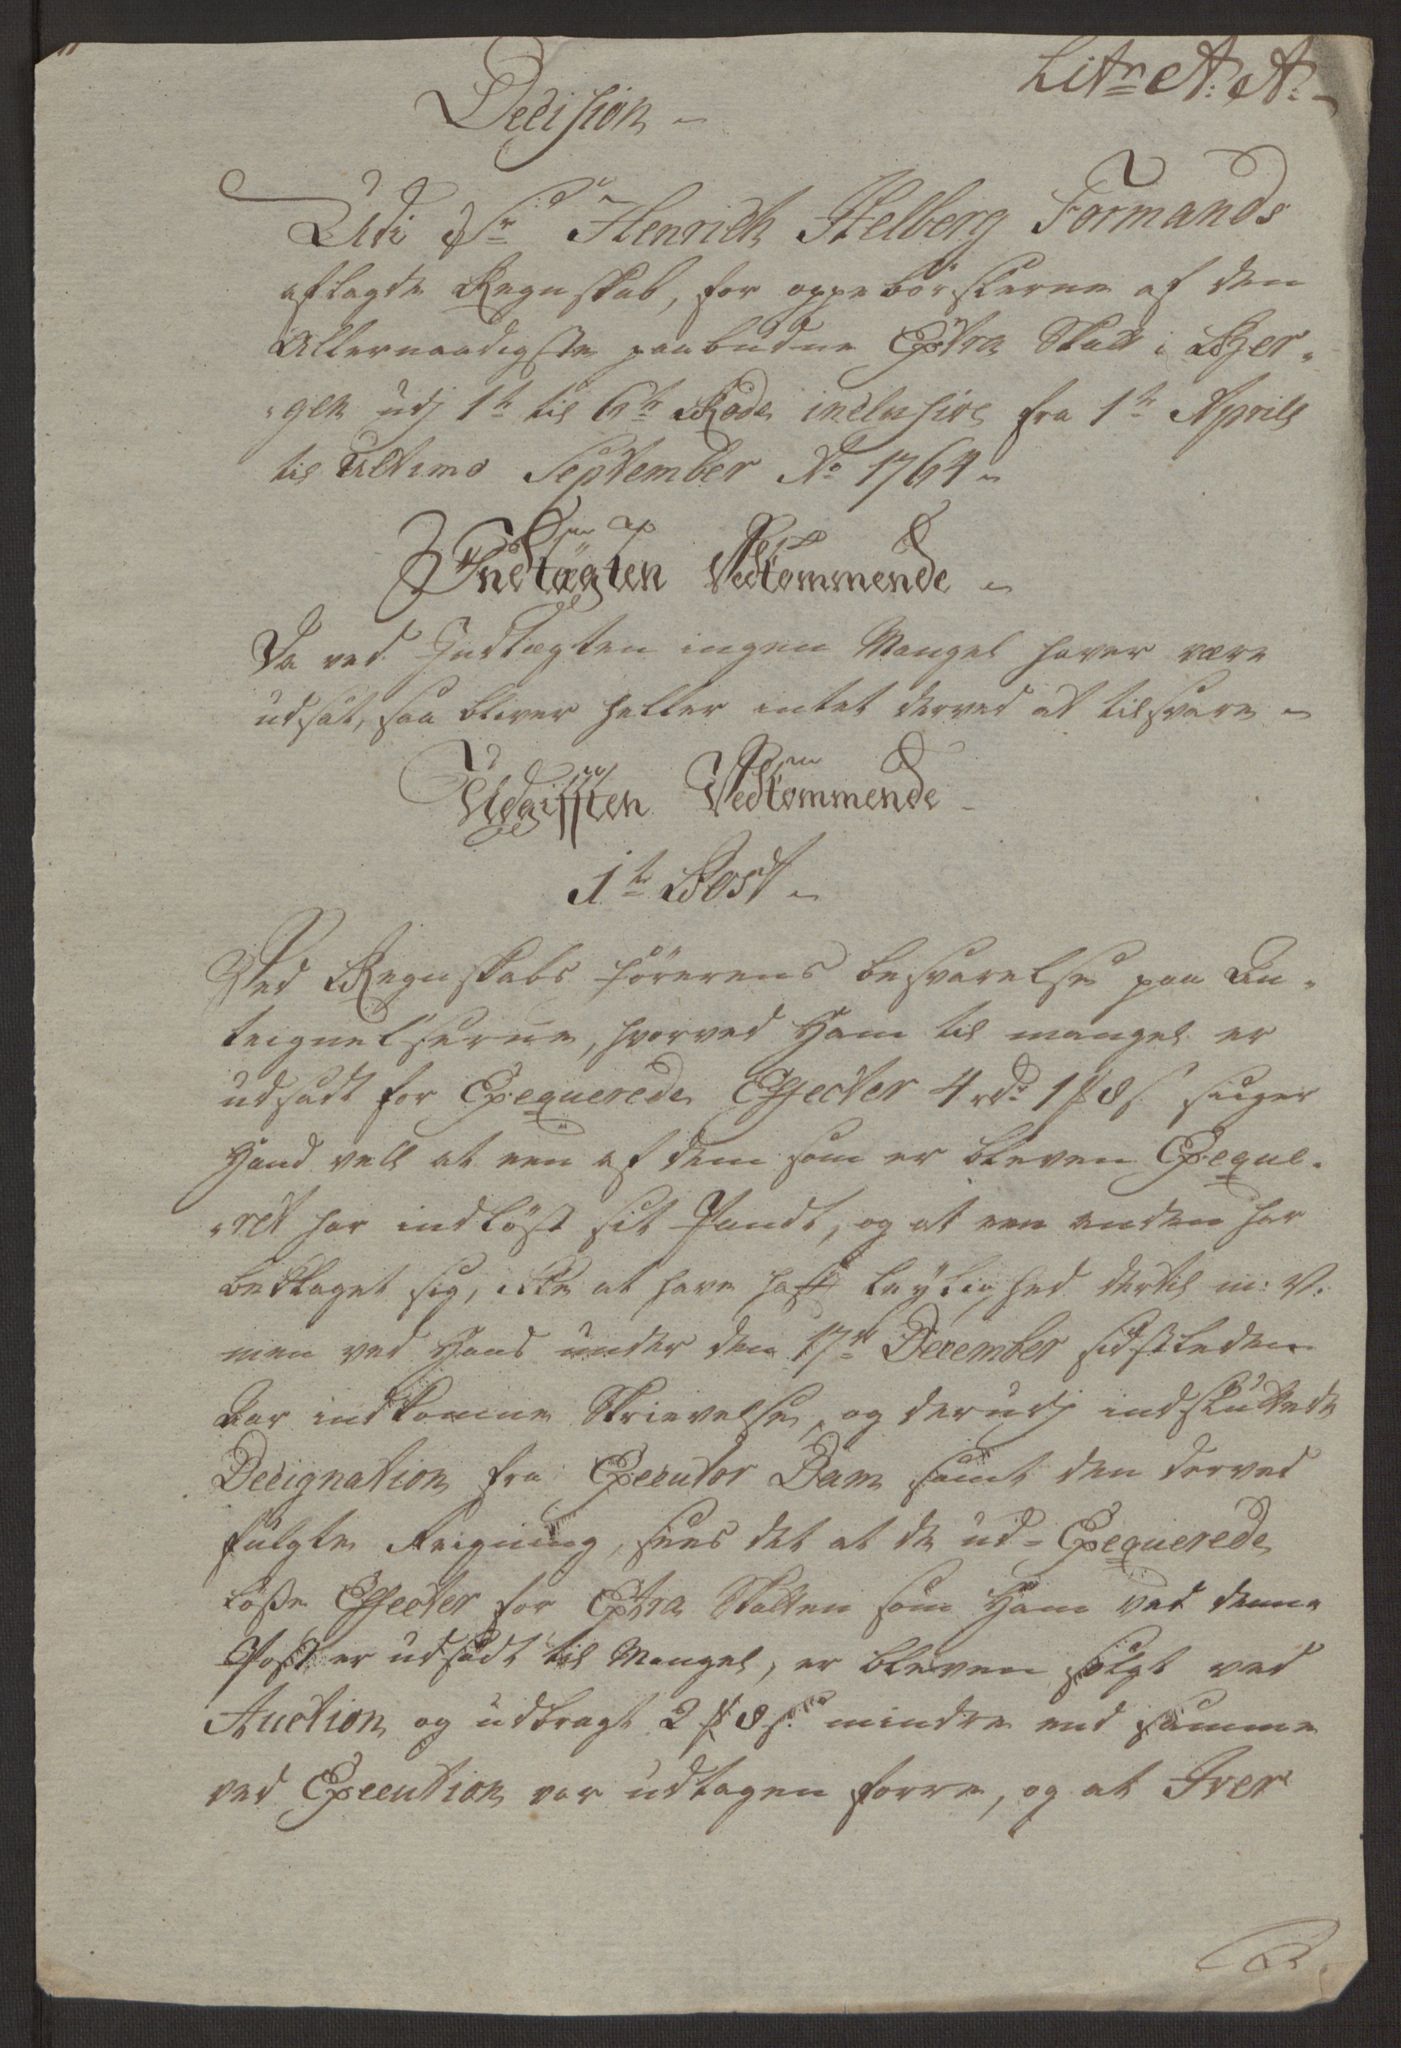 Litr A: A:
Decision
Udi Sr Henrich Helberg Formands
aflagde Regnskab, for oppebörslerne af den
Allernaadigste paabudne Extra Skatt i Ber-
gen udj 1te til 6te Rode inclusive fra 1te Aprill
til ultimo September Ao 1764
Indtægten Vedkommende
Da ved Indtægten ingen Mangel haver være
udsat, saa bliver heller intet derved at tilsvare
Udgifften Vedkommende
1te Post
Ved Regnskabs förerens besvarelse paa An-
teignelserne, hvorved Ham til mangel er
udsadt for Exequerede Effecter 4 rdr 1 siger
Hand vell at een af dem som er bleven Exeque-
ret har indlöst sit Pandt, og at een anden har
beklaget sig, ikke at have haft leylighed dertil m: v.
men ved Hans under den 17de December sidstleden
Aar indkomne Skrivelse, og derudj indsluttede
Designation fra Executor Dam samt den derved
fulgte Reigning, sees det at de ud-Exequerede
löse Effecter for Extra Skatten som Ham ved denne
Post er udsadt til Mangel, er bleven solgt ved
Auction og udbragt 2 mindre end samme
ved Execution var udtagen forre, og at Iver